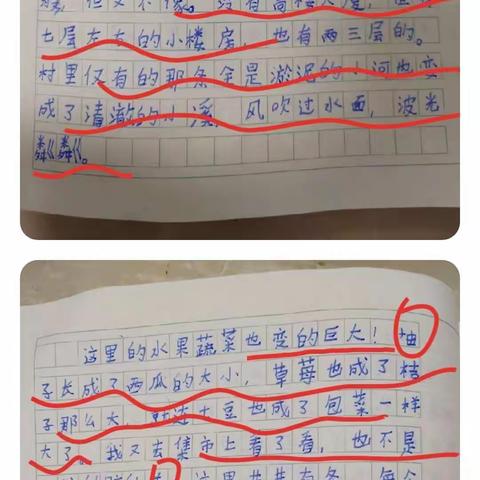 没有高楼大厦，
七层左右的小楼房，也有两三层的。
村里仅有的那条全是淤泥的小河也变
成了清澈的小溪，风吹过水面，波光
粼粼。
这里的水果蔬菜也变的巨大！柚
子长成了西瓜的大小，草莓也成了桔
子那么大，就连土豆也成了包菜一样
大了。我又去集市上看了看，也不是
这里